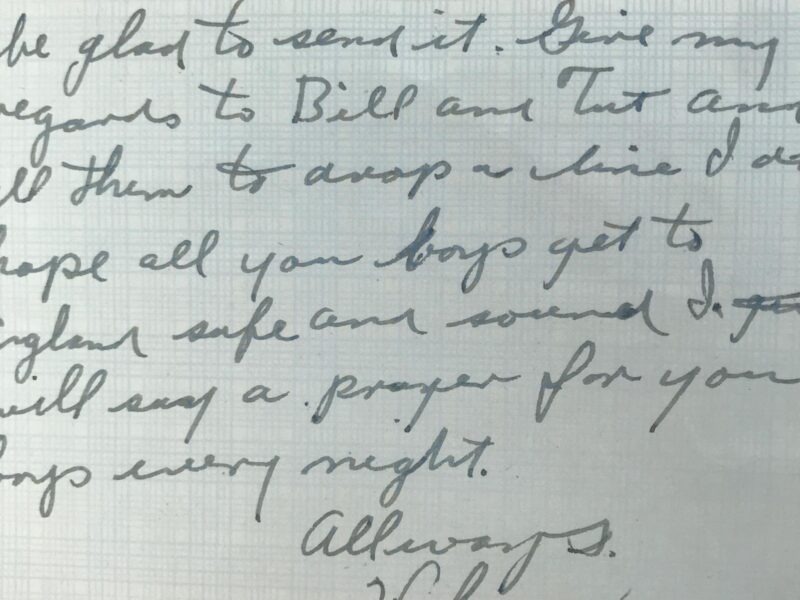 be glad to send it. Give my
regards to Bill and Tut and
ll them to drop a line I do
hope all you boys get to
ngland safe and sound I.
will say a prayer for you
boys every night.
Allways.